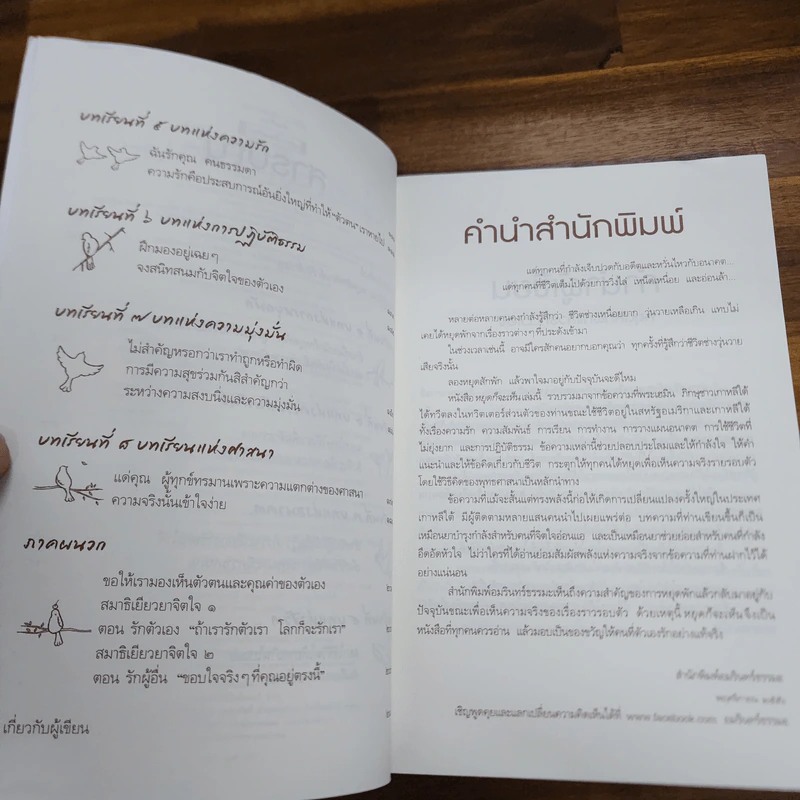 บทเรียนที่ ๕ บทแห่งความรัก
ฉันรักคุณ คนธรรมดา
ความรักคือประสบการณ์อันยิ่งใหญ่ที่ทำให้ “ตัวตน” เราหายไป
บทเรียนที่ ๖ บทแห่งการปฏิบัติธรรม
ฝึกมองอยู่เฉยๆ
จงสนิทสนมกับจิตใจของตัวเอง
บทเรียนที่ ๗ บทแห่งความมุ่งมั่น
ไม่สำคัญหรอกว่าเราทำถูกหรือทำผิด
การมีความสุขร่วมกันสิสำคัญกว่า
ระหว่างความสงบนิ่งและความมุ่งมั่น
บทเรียนที่ ๘ บทเรียนแห่งศาสนา
แด่คุณ ผู้ทุกข์ทรมานเพราะความแตกต่างของศาสนา
ความจริงนั้นเข้าใจง่าย
ภาคผนวก
ขอให้เรามองเห็นตัวตนและคุณค่าของตัวเอง
สมาธิเยียวยาจิตใจ ๑
ตอน รักตัวเอง “ถ้าเรารักตัวเรา โลกก็จะรักเรา”
สมาธิเยียวยาจิตใจ ๒
ตอน รักผู้อื่น “ขอบใจจริงๆ ที่คุณอยู่ตรงนี้”
เกี่ยวกับผู้เขียน
คำนำสำนักพิมพ์
แด่ทุกคนที่กำลังเจ็บปวดกับอดีตและหวั่นไหวกับอนาคต...
แด่ทุกคนที่ชีวิตเต็มไปด้วยการวิ่งไล่ เหน็ดเหนื่อย และอ่อนล้า...
หลายต่อหลายคนคงกำลังรู้สึกว่า ชีวิตช่างเหนื่อยยาก วุ่นวายเหลือเกิน แทบไม่
เคยได้หยุดพักจากเรื่องราวต่างๆ ที่ประดังเข้ามา
ในช่วงเวลาเช่นนี้ อาจมีใครสักคนอยากบอกคุณว่า ทุกครั้งที่รู้สึกว่าชีวิตช่างวุ่นวาย
เสียจริงนั้น
ลองหยุดสักพัก แล้วพาใจมาอยู่กับปัจจุบันจะดีไหม
หนังสือ หยุดก็จะเห็น เล่มนี้ รวบรวมมาจากข้อความที่พระเฮมิน ภิกษุชาวเกาหลีใต้
ได้ทวีตลงในทวิตเตอร์ส่วนตัวของท่านขณะใช้ชีวิตอยู่ในสหรัฐอเมริกาและเกาหลีใต้
ทั้งเรื่องความรัก ความสัมพันธ์ การเรียน การทำงาน การวางแผนอนาคต การใช้ชีวิตที่
ไม่ยุ่งยาก และการปฏิบัติธรรม ข้อความเหล่านี้ช่วยปลอบประโลมและให้กำลังใจ ให้คำ
แนะนำและให้ข้อคิดเกี่ยวกับชีวิต กระตุกให้ทุกคนได้หยุดเพื่อเห็นความจริงรายรอบตัว
โดยใช้วิธีคิดของพุทธศาสนาเป็นหลักนำทาง
ข้อความที่แม้จะสั้นแต่ทรงพลังนี้ก่อให้เกิดการเปลี่ยนแปลงครั้งใหญ่ในประเทศ
เกาหลีใต้ มีผู้ติดตามหลายแสนคนนำไปเผยแพร่ต่อ บทความที่ท่านเขียนขึ้นก็เป็น
เหมือนยาบำรุงกำลังสำหรับคนที่จิตใจอ่อนแอ และเป็นเหมือนยาช่วยย่อยสำหรับคนที่กำลัง
อึดอัดหัวใจ ไม่ว่าใครที่ได้อ่านย่อมสัมผัสพลังแห่งความจริงจากข้อความที่ท่านฝากไว้ได้
อย่างแน่นอน
สำนักพิมพ์อมรินทร์ธรรมะเห็นถึงความสำคัญของการหยุดพักแล้วกลับมาอยู่กับ
ปัจจุบันขณะเพื่อเห็นความจริงของเรื่องราวรอบตัว ด้วยเหตุนี้ หยุดก็จะเห็น จึงเป็น
หนังสือที่ทุกคนควรอ่าน แล้วมอบเป็นของขวัญให้คนที่ตัวเองรักอย่างแท้จริง
สำนักพิมพ์อมรินทร์ธรรมะ
เชิญพูดคุยและแลกเปลี่ยนความคิดเห็นได้ที่ www.facebook.com อมรินทร์ธรรมะ